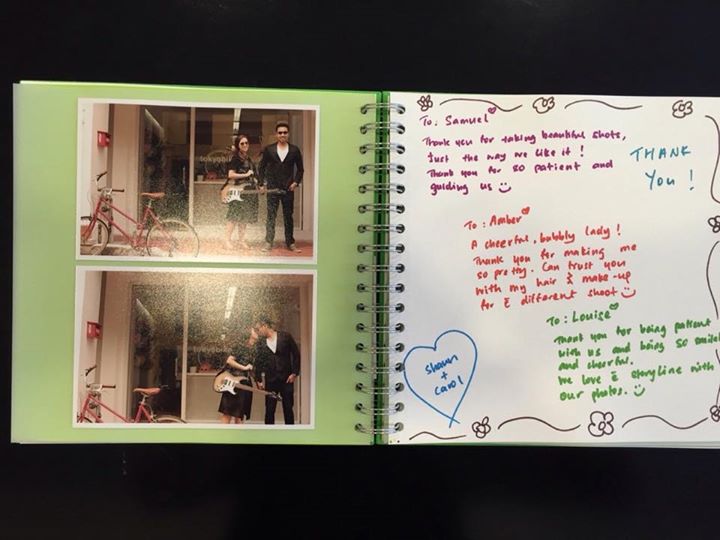 tokyobike
To: Samuel
Thank you for taking beautiful shots,
just the way we like it!
Thank you for so patient and
guiding us
THANK
YOU!
To: Amber
A cheerful, bubbly lady!
Thank you for making me
so pretty. Can trust you
with my hair & make-up
for E different shoot
To: Louise
Thank you for being patient
with us and being so smiley
and cheerful.
We love E storyline with
our photos.
Shawn
+
Carol